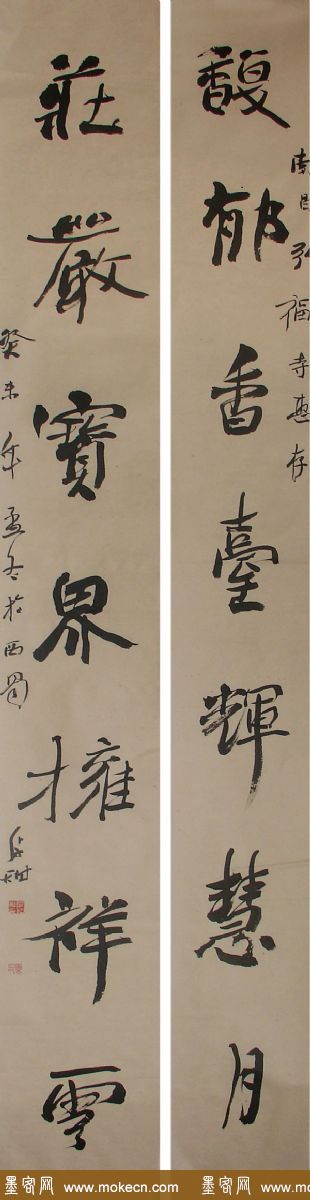 馥郁香臺輝慧月
弘福寺惠存
莊嚴寶界擁祥雲
癸未年孟冬於西蜀
墨客网 www.mokecn.com 墨客网 www.mokecn.com